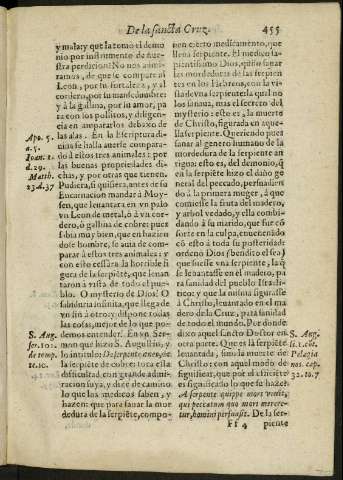 De la sancta Cruz.
455
y mala: y que la tomó el demo
nio por instrumento de nuestra
perdicion? No nos admi
ramos, de que se compare al
Leon, por su fortaleza, y al
cordero, por su mansedumbre:
y à la gallina, por su amor, pa
ra con los pollitos, y diligen
cia en ampararlos debaxo de
las alas. En la Escriptura di
uina se halla auerse compara
do à estos tres animales: por
las buenas propriedades di
chas, y por otras que tienen.
Pudiera, si quisiera, antes de su
Encarnacion mandar à Moy
sen, que leuantara en vn palo
vn Leon de metal, ò vn cor
dero, ò gallina de cobre: pues
sabia muy bien, que haziendo
se hombre, se auia de com
parar à estos tres animales: y
con esto cessàra la horrible fi
gura de la serpiẽte, que leuan
taron a vista de todo el pue
blo. O mysterio de Dios! O
sabiduria infinita, que llega de
vn fin à otro: y dispone todas
las cosas, mejor de lo que po
demos entender. En vn Ser-
mon que hizo S. Augustin, y
lo intitulo: De serpente æneo, de
la serpiẽte de cobre: toca esta
difficultad con grande admi-
racion suya, y dize de camino
lo que los medicos saben, y
hazen: que para sanar la mor
dedura de la serpiẽte, compo-
Apo. 5.
a. 5.
Ioan. 1.
d. 29.
Matth.
23. d. 37
S. Aug.
ser. 101.
de temp.
to. 10.
nen cierto medicamento, que
llena serpiente. El medico sa-
pientissimo Dios, quiso sanar
las mordeduras de las serpien
tes en los Hebreos, con la vi-
sta de vna serpiente la qual no
los sanaua, mas el secreto del
mysterio: este es, la muerte
de Christo, figurada en aque-
lla serpiente. Queriendo pues
sanar al genero humano de la
mordedura de la serpiente an
tigua: esto es, del demonio, q̃
en la serpiẽte hizo el daño ge
neral del peccado, persuadien
do à la primera muger, à que
comiesse la fruta del madero,
y arbol vedado, y ella combi-
dando à su marido, que fue cõ
sorte en la culpa, enuenenado
cõ esto à toda su posteridad:
ordeno Dios (bendito el sea)
que fuesse vna serpiente, la q̃
se leuantasse en el madero, pa
ra sanidad del pueblo Israeli-
tico: y que la misma figurasse
à Christo, leuantado en el ma
dero de la Cruz, para sanidad
de todo el mundo. Por donde
dixo aquel sancto Doctor en
otra parte. Que es la serpiẽte
leuantada, sino la muerte de
Christo: con aquel modo de
significar, que por el efficiẽte
es significado lo que se haze?
A serpente quippe mors venit,
qui peccatum quo mori merere-
tur, homini persuasit. De la ser-
S. Aug.
li. 1. cõt.
Pelagia
nos. cap.
32. to. 7
Ff 4
piente